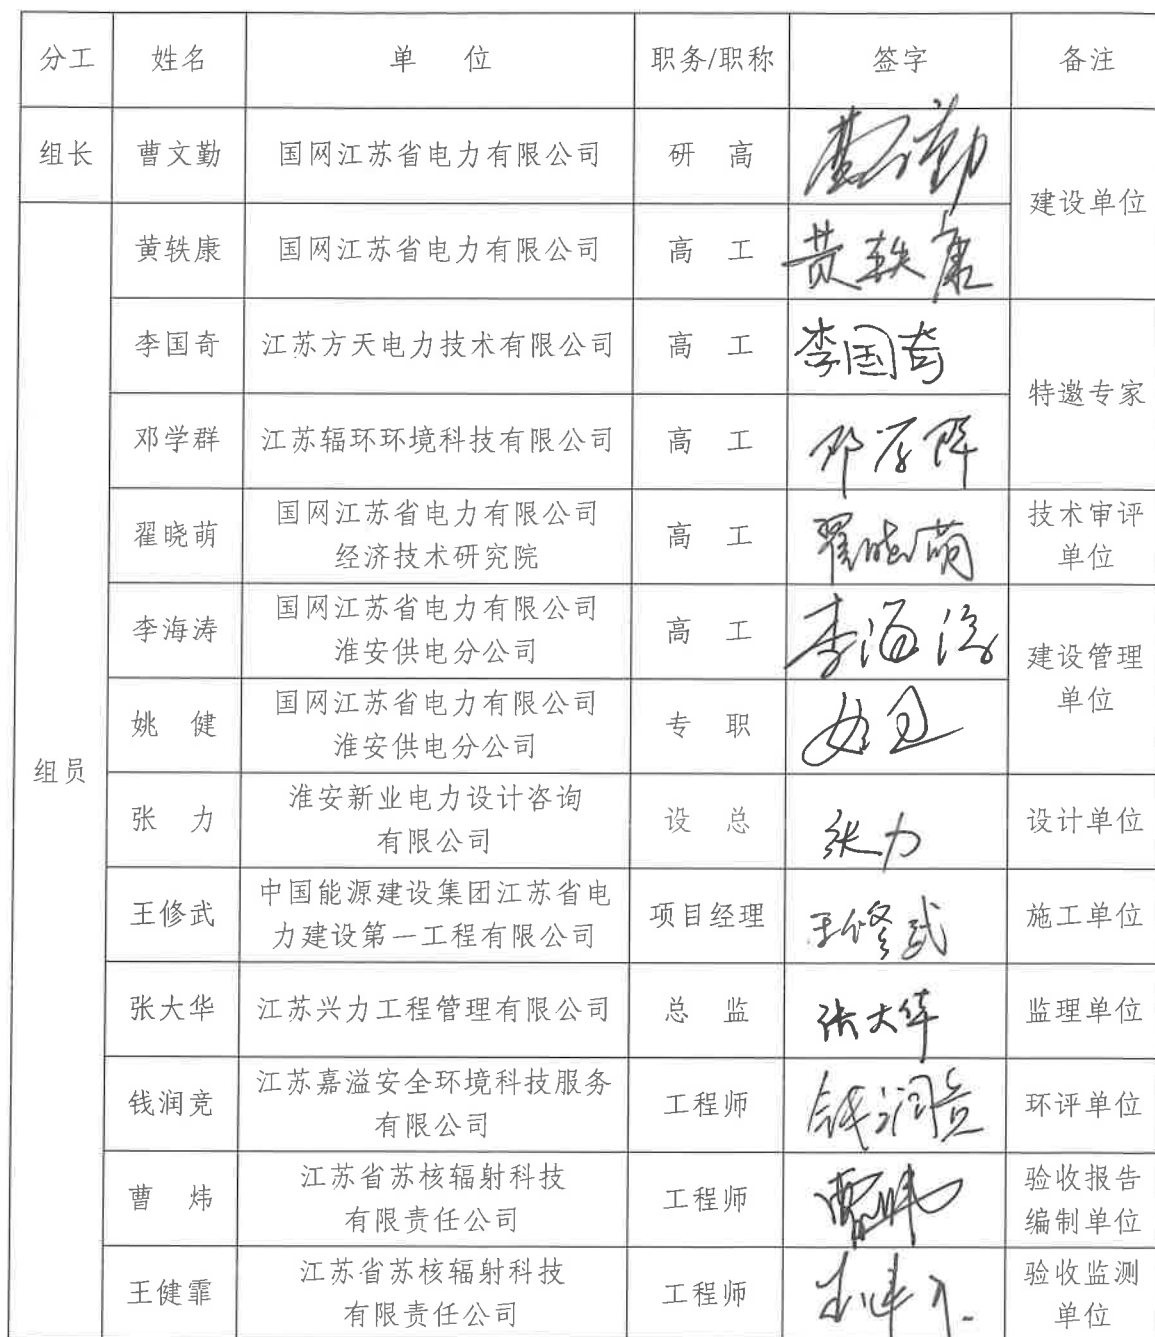 分工 姓名 单 位 职务/职称 签字 备注
组长 曹文勤 国网江苏省电力有限公司 研 高 曹文勤 建设单位
组员
黄轶康 国网江苏省电力有限公司 高 工 黄轶康
李国奇 江苏方天电力技术有限公司 高 工 李国奇 特邀专家
邓学群 江苏辐环环境科技有限公司 高 工 邓学群
翟晓萌 国网江苏省电力有限公司
经济技术研究院 高 工 翟晓萌 技术审评
单位
李海涛 国网江苏省电力有限公司
淮安供电分公司 高 工 李海涛 建设管理
单位
姚 健 国网江苏省电力有限公司
淮安供电分公司 专 职 姚健
张 力 淮安新业电力设计咨询
有限公司 设 总 张力 设计单位
王修武 中国能源建设集团江苏省电
力建设第一工程有限公司 项目经理 王修武 施工单位
张大华 江苏兴力工程管理有限公司 总 监 张大华 监理单位
钱润竞 江苏嘉溢安全环境科技服务
有限公司 工程师 钱润竞 环评单位
曹 炜 江苏省苏核辐射科技
有限责任公司 工程师 曹炜 验收报告
编制单位
王健霏 江苏省苏核辐射科技
有限责任公司 工程师 验收监测
单位